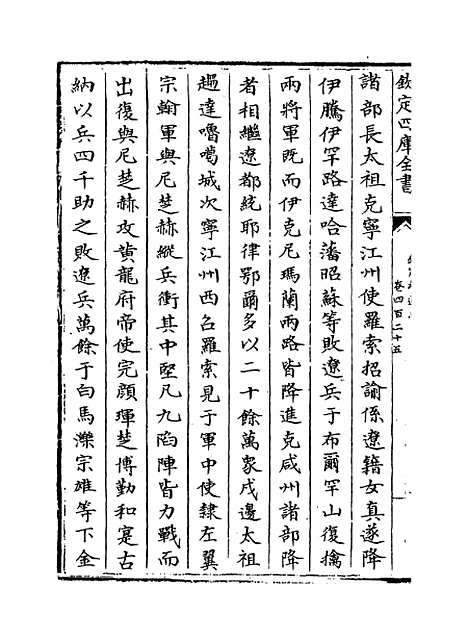 欽定四庫全書
卷四百二十五
諸部長太祖克寧江州使羅索招諭係遼籍女真遂降
伊騰伊罕路達哈藩昭蘇等敗遼兵于布爾罕山復擒
兩將軍既而伊克尼瑪蘭兩路皆降進克咸州諸部降
者相繼遼都統耶律鄂爾多以二十餘萬衆戍邊太祖
趨達嚕噶城次寧江州西召羅索見于軍中使隸左翼
宗翰軍與尼楚赫縱兵衝其中堅凡九陷陣皆力戰而
出復與尼楚赫攻黃龍府帝使完顔琿楚博勤和寔古
納以兵四千助之敗遼兵萬餘于白馬濼宗雄等下金